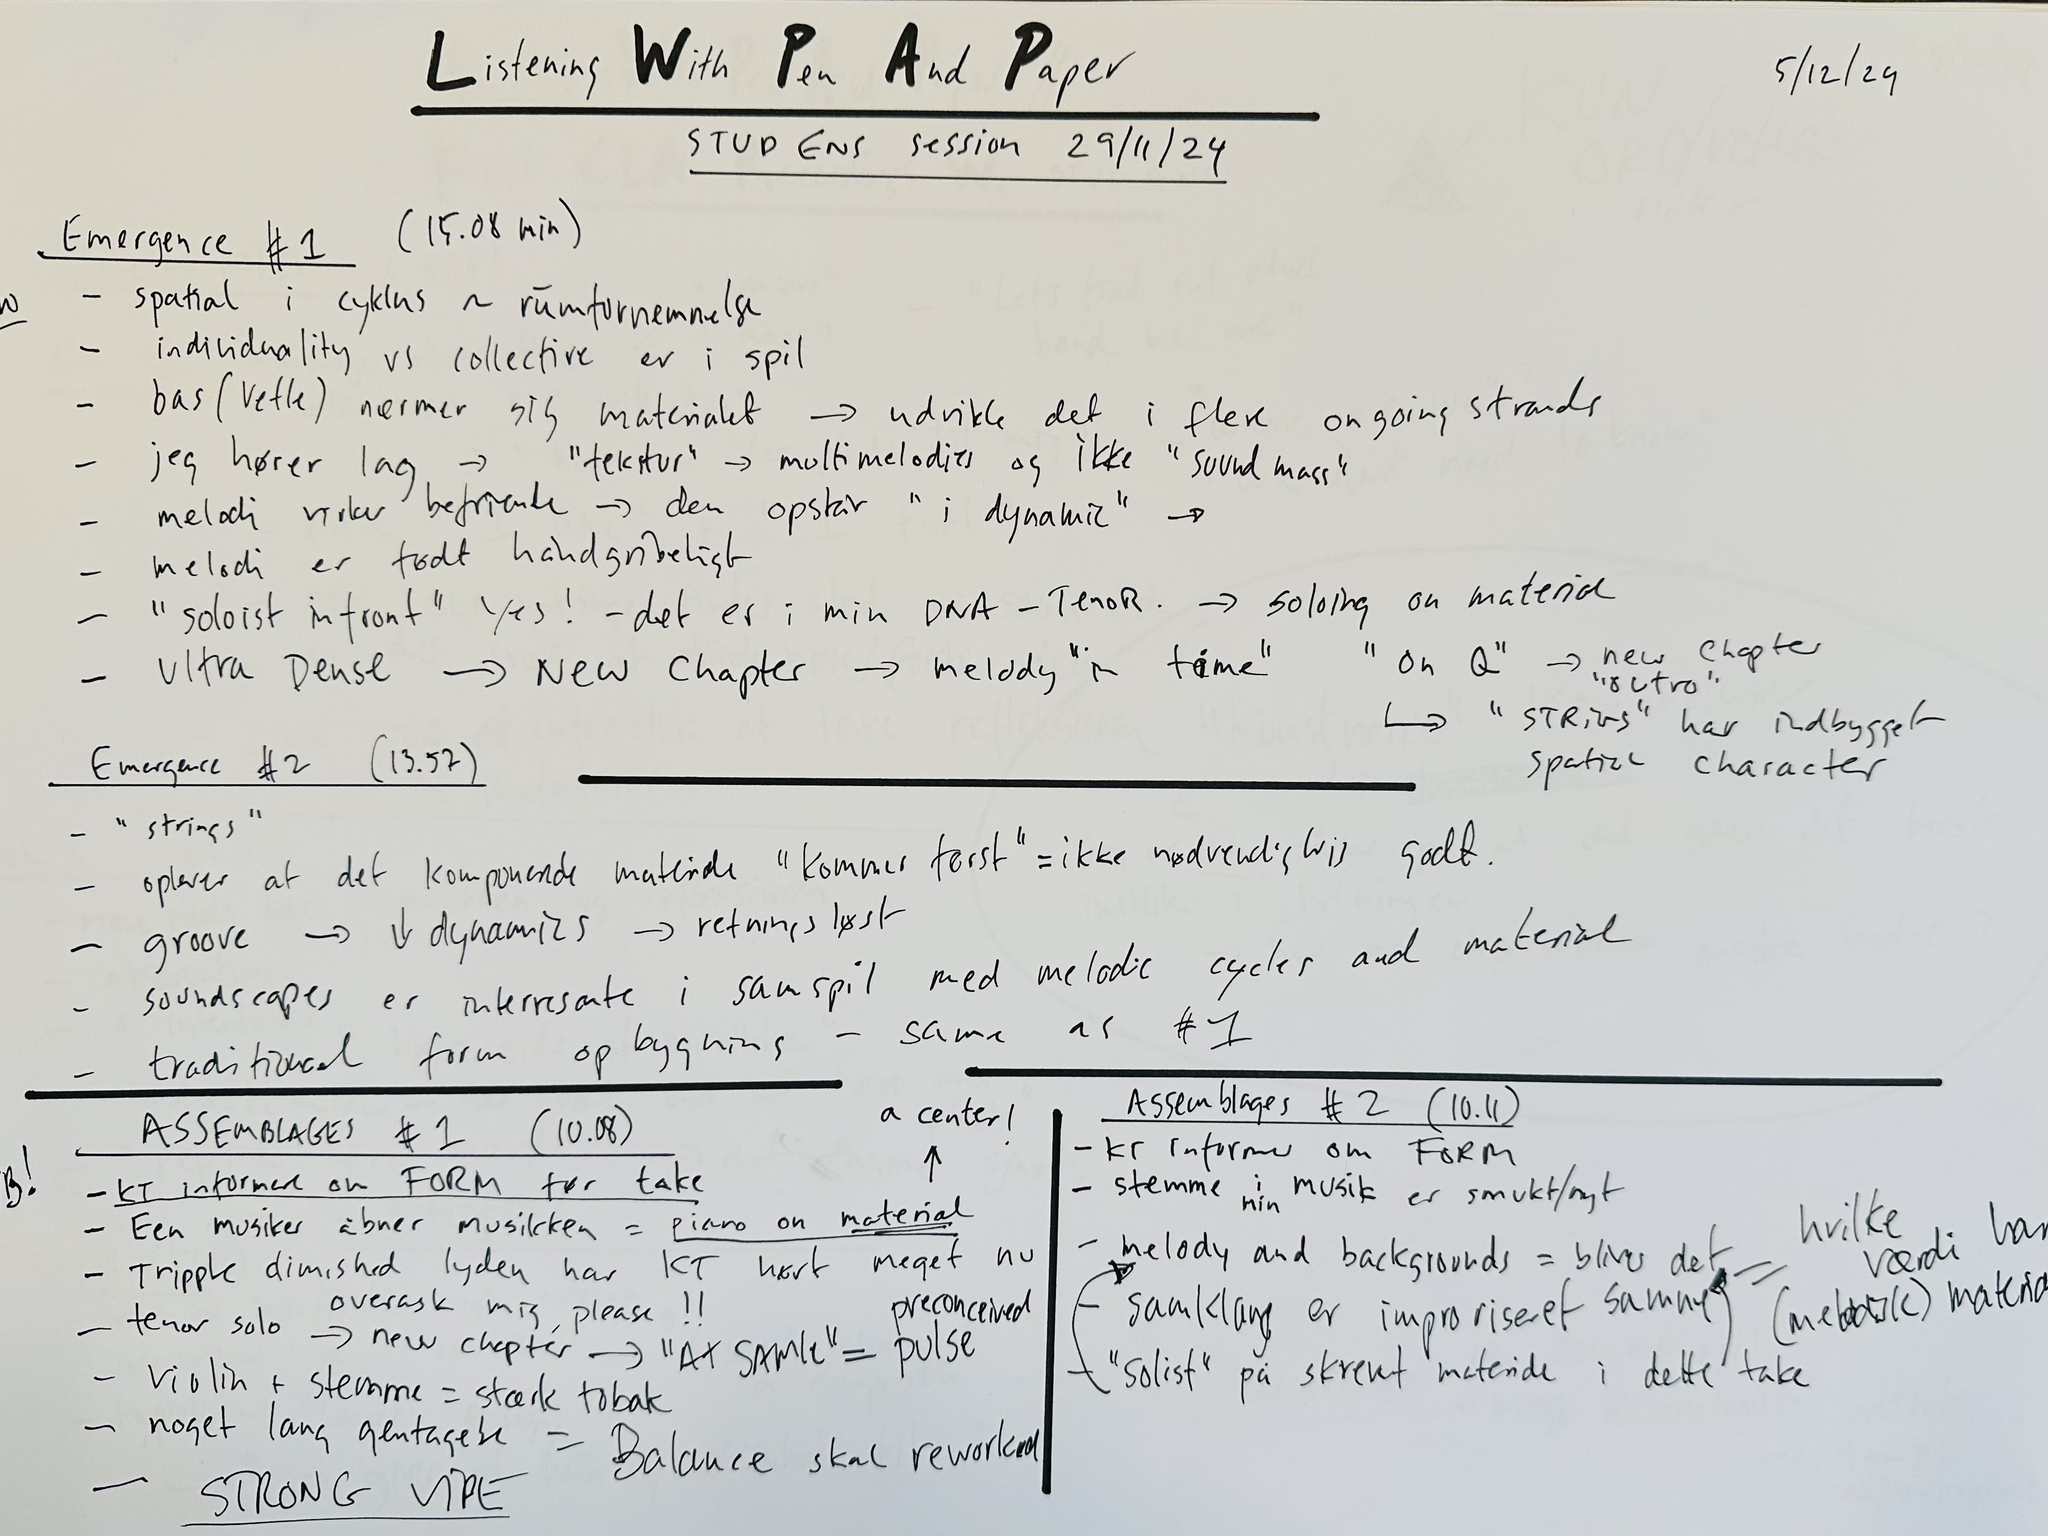 Listening With Pen And Paper
5/12/24
STUD ENS session 29/11/24
Emergence #1 (15.08 min)
- spatial i cyklus ~ rumfornemmelse
- individuality vs collective er i spil
- bas (Vetle) nærmer sig materialet → udvikle det i flere ongoing strands
- jeg hører lag → "tekstur" → multimelodies og ikke "sound mass"
- melodi virker befriende → den opstår "i dynamic" →
- melodi er født håndgribeligt
- "soloist infront" Yes! - det er i min DNA - TenoR. → soloing on material
- Ultra Dense → New Chapter → melody "in time" "On Q" → new chapter
"outro"
↳ "STRings" har indbygget
spatial character
Emergence #2 (13.57)
- "strings"
- oplever at det komponerede materiale "kommer først" = ikke nødvendigvis godt.
- groove → ↓ dynamics → retningsløst
- soundscapes er interresante i samspil med melodic cycles and material
- traditional form opbygning - same as #1
ASSEMBLAGES #1 (10.08)
a center!
↑
- KT informere om FORM før take
- Een musiker åbner musikken = piano on material
- Tripple dimished lyden har KT hørt meget nu
overask mig, please !!
- tenor solo → new chapter → "AT SAMLE" = preconceived
pulse
- violin + stemme = stærk tobak
- noget lang gentagelse = Balance skal reworked
- STRONG VIPE
Assemblages #2 (10.11)
- KT informer om FORM
- stemme i min musik er smukt/nyt
- melody and backgrounds = bliver det = hvilke
værdi har
(melodisk) materia
- samklang er improviseret sammen
- "Solist" på skrevet materiale i dette take